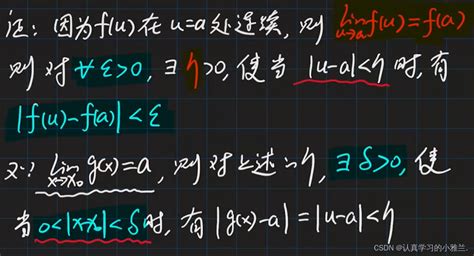 证：因为f(u)在u=a处连续，则 lim_{u→a} f(u)=f(a)
则对∀ε>0，∃η>0，使当 |u-a|<η 时，有
|f(u)-f(a)|<ε
又∵ lim_{x→x₀} g(x)=a，则对上述的η，∃δ>0，使
当0<|x-x₀|<δ时，有|g(x)-a|=|u-a|<η
CSDN @认真学习的小雅兰.